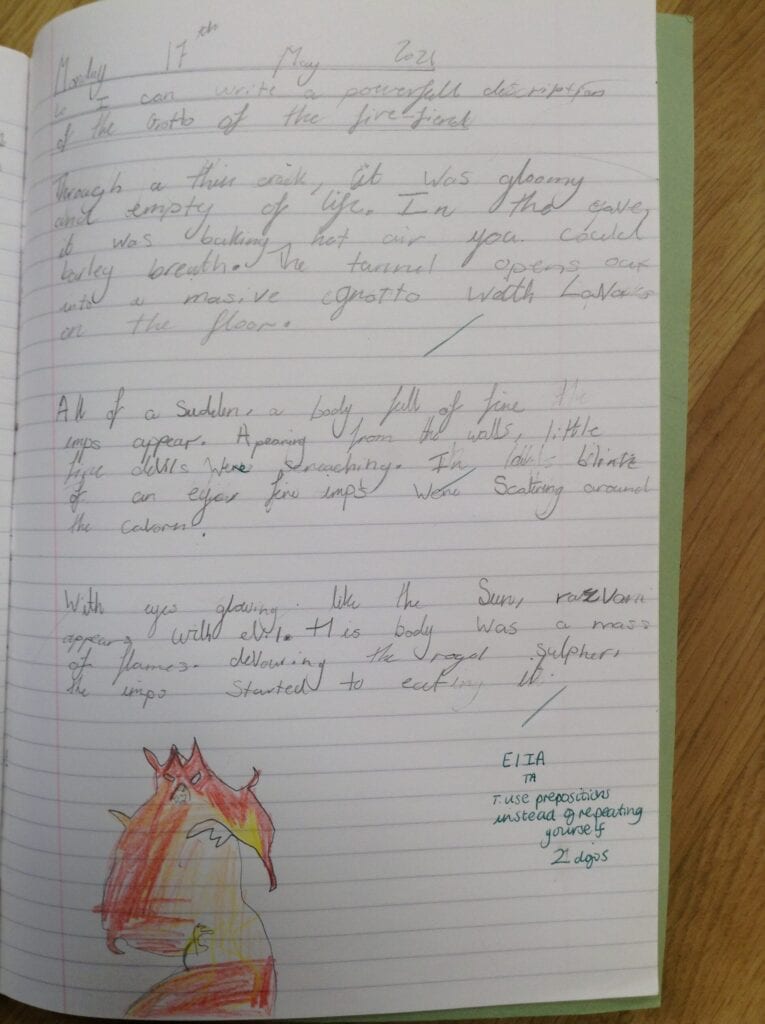 Monday 17th May 2021
I can write a powerfull description
of the Grotto of the fire-fiend
Through a thin crack, it was gloomy
and empty of life. In the cave,
it was baking hot air you could
barley breath. The tunnel opens out
into a masive grotto with
on the floor.
All of a sudden, a body full of fire
imps appear. Apearing from the walls, little
fire devils were screaching. In
of an eye, fire imps were Scatering around
the cavern.
With eyes glowing like the Sun, razvani
appears with evil. His body was a mass
of flames. devouring the royal Sulpher,
the imps Started to eating it.
E/IA
TA
T. use prepositions
instead of repeating
yourself
2 dojos